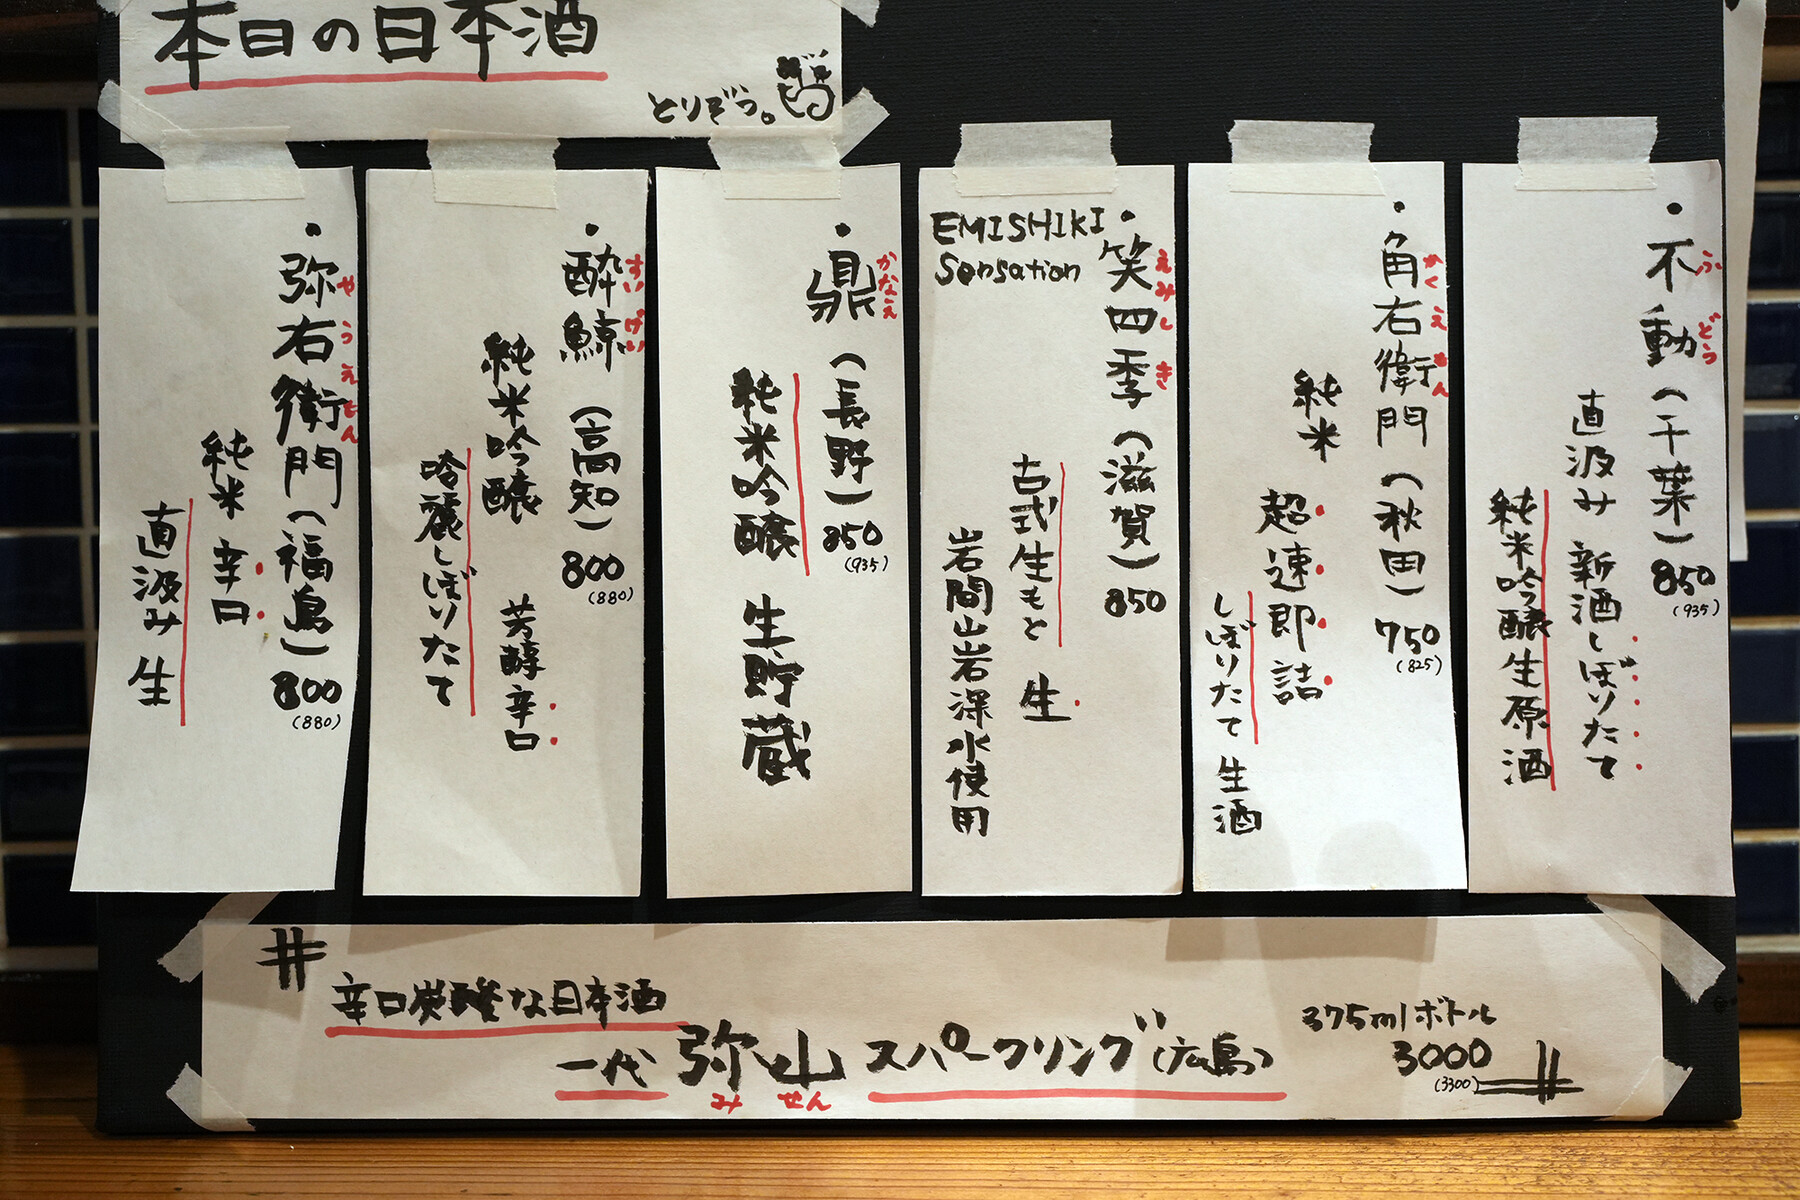 本日の日本酒
とりぞう。
・不動(千葉)850
ふどう
(935)
直汲み 新酒しぼりたて
純米吟醸生原酒
・角右衛門(秋田)750
かくえもん
(825)
純米 超速即詰
しぼりたて 生酒
・笑四季(滋賀)850
えみしき
EMISHIKI
Sensation
古式生もと 生
岩間山岩深水使用
・鼎(長野)850
かなえ
(935)
純米吟醸 生貯蔵
・酔鯨(高知)800
すいげい
(880)
純米吟醸 芳醇辛口
吟麗しぼりたて
・弥右衛門(福島)800
やうえもん
(880)
純米 辛口
直汲み 生
辛口炭酸な日本酒
一代 弥山 スパークリング(広島)
みせん
375mlボトル
3000
(3300)